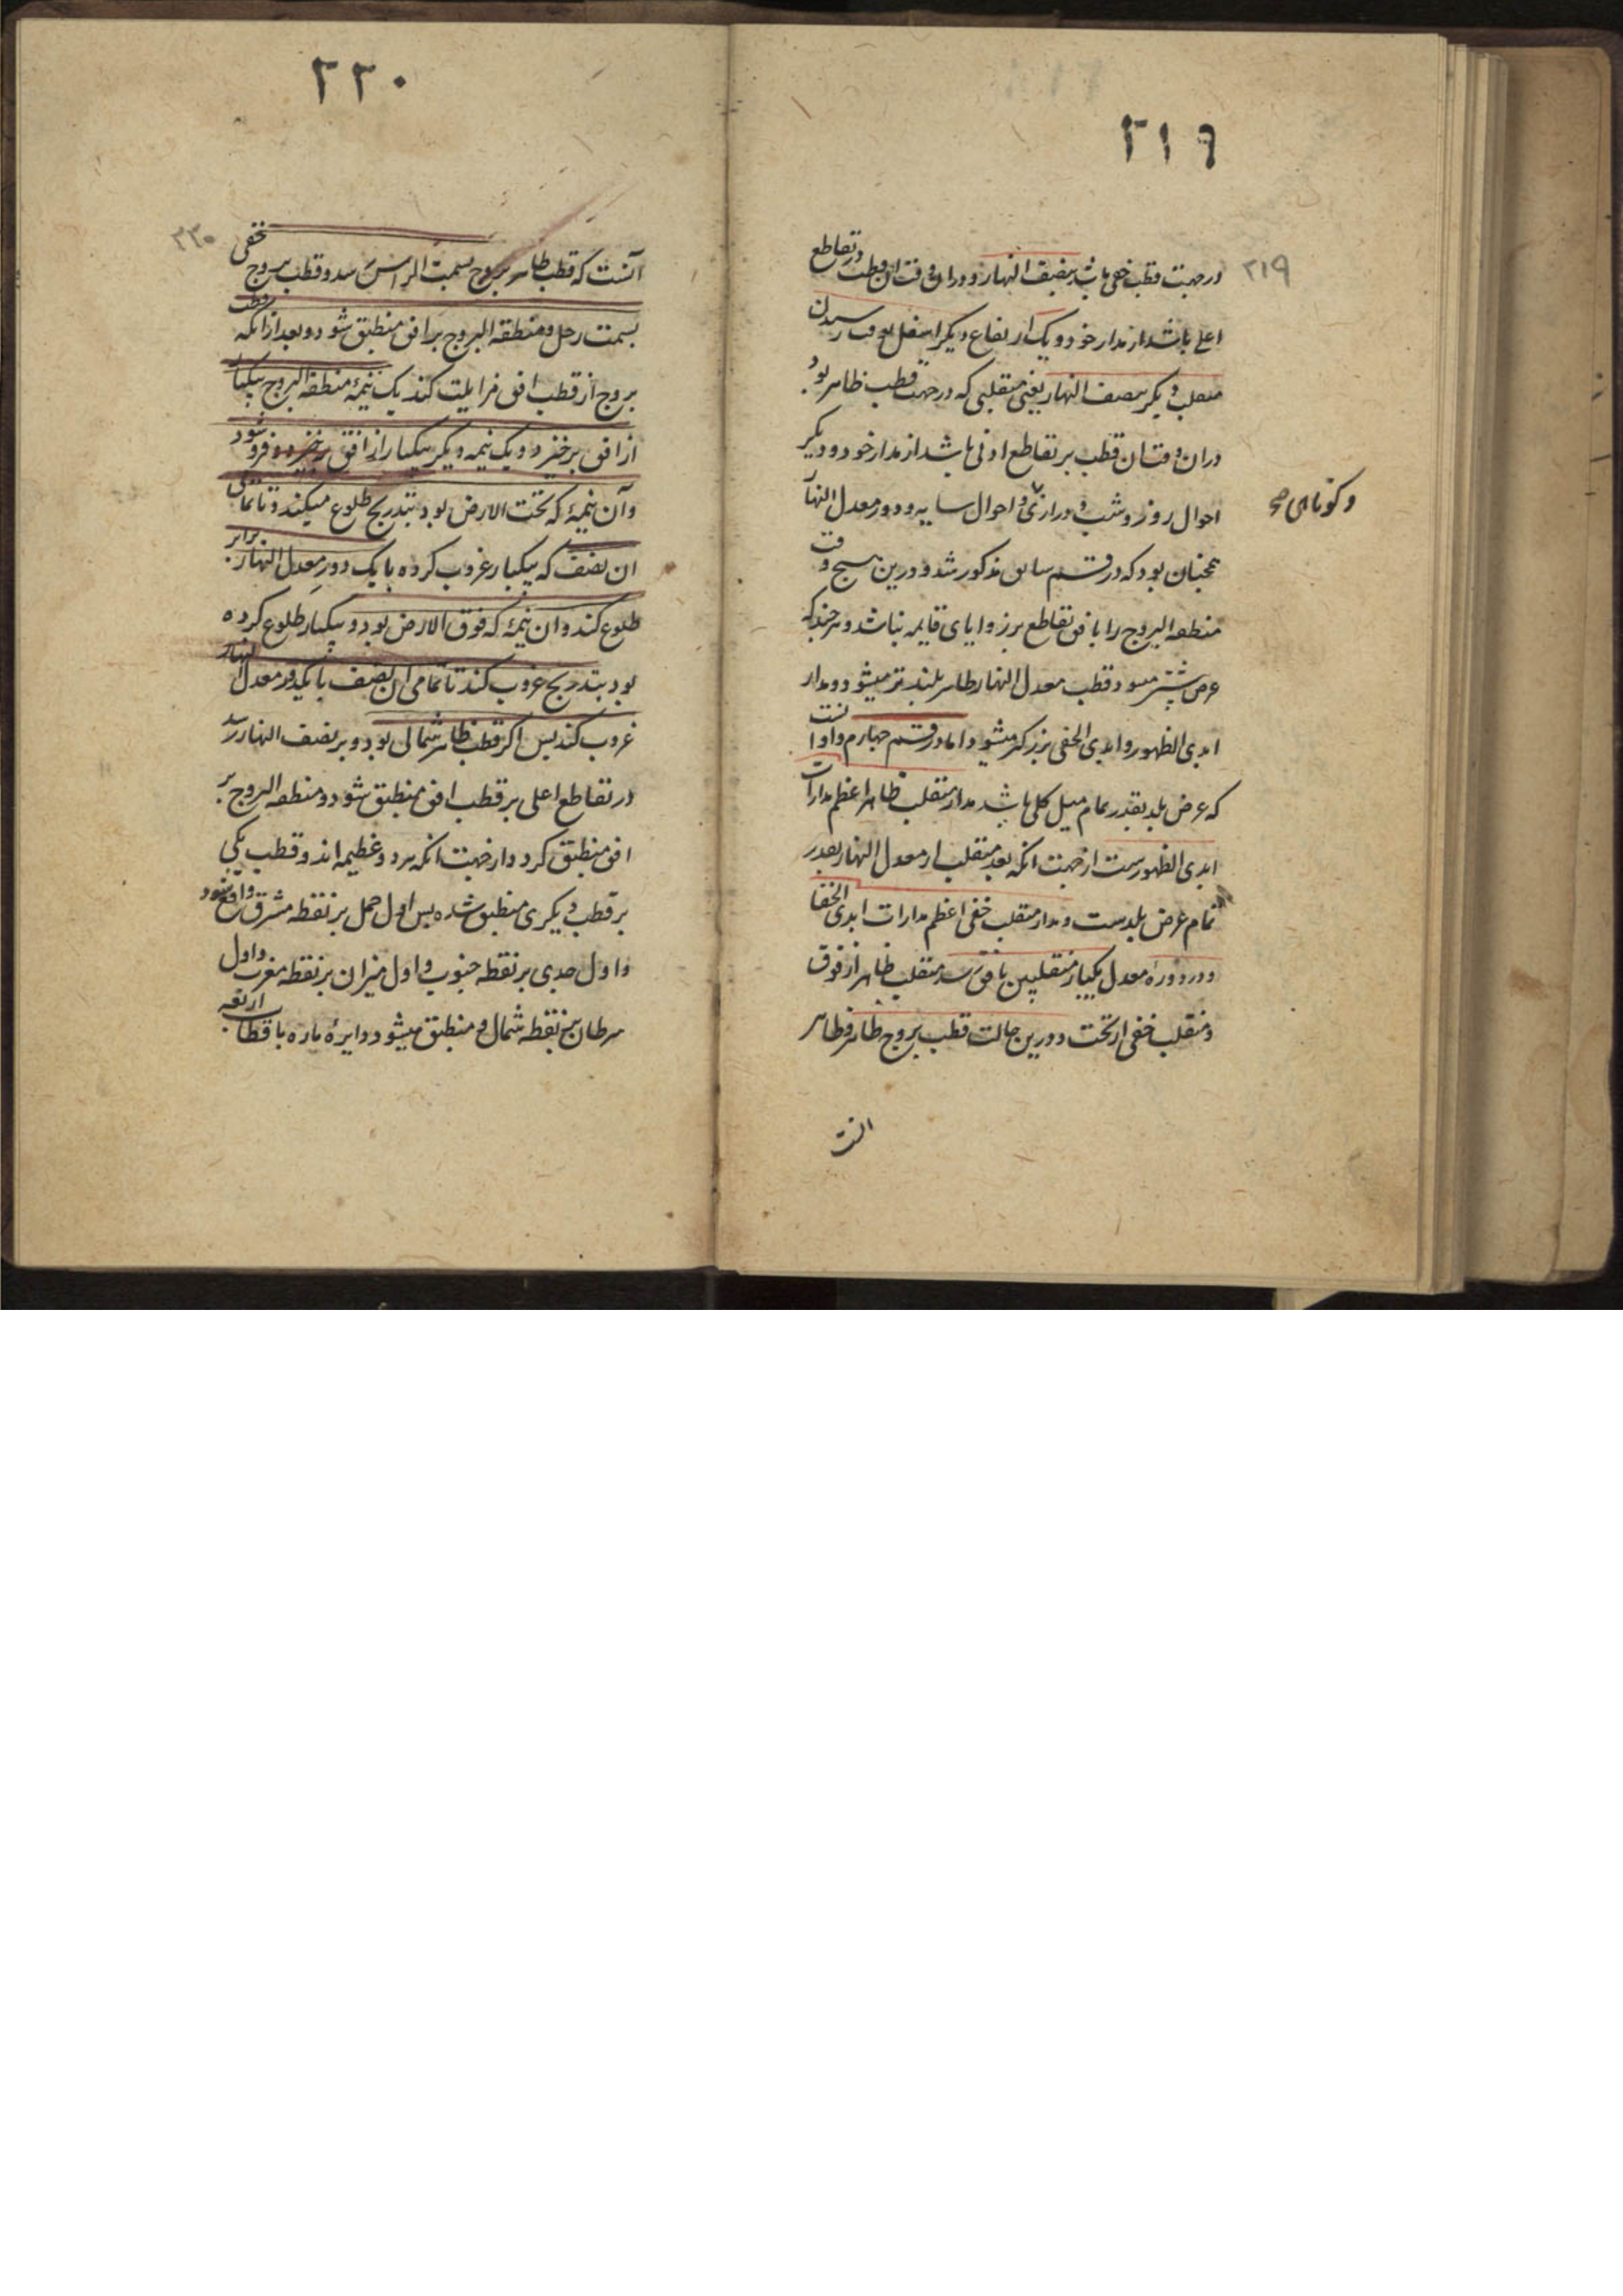 ۲۱۹
۲۱۹
در جهت قطب خفی باشد بنصف النهار و در ان وقت ان قطب در تقاطع
اعلی باشد از مدار خود و یک ارتفاع دیگر اسفل بوقت رسیدن
منقلب دیگر بنصف النهار یعنی منقلبی که در جهت قطب ظاهر بود
دران وقت ان قطب بر تقاطع ادنی باشد از مدار خود و دیگر
احوال روز و شب و درازی و احوال سایه و دور معدل النهار
و کوتاهی صح
همچنان بود که در قسم سابق مذکور شد و درین هیچ وقت
منطقه البروج را با افق تقاطع بر زوایای قایمه نباشد و هر چند که
عرض بیشتر میشود قطب معدل النهار ظاهر بلند تر میشود و مدار
ابدی الظهور و ابدی الخفی بزرکتر میشود اما در قسم چهارم و او انست
که عرض بلد بقدر تمام میل کلی باشد مدار منقلب ظاهر اعظم مدارات
ابدی الظهور ست از جهت انکه بعد منقلب از معدل النهار بقدر
تمام عرض بلدست و مدار منقلب خفی اعظم مدارات ابدی الخفا
و در دوره معدل یکبار منقلبین بافق رسد منقلب ظاهر از فوق
و منقلب خفی از تحت و درین حالت قطب بروج ظاهر و ظاهر
انست
۲۲۰
۲۲۰
آنست که قطب ظاهر بروج بسمت الراس رسد و قطب بروج خفی
بسمت رجل و منطقه البروج بر افق منطبق شود و بعد از انکه قطب
بروج از قطب افق مزایلت کند یک نیمهٔ منطقه البروج بیکبار
از افق برخیزد و یک نیمه دیکر بیکبار از افق فرو شود
و آن نیمهٔ که تحت الارض بود بتدریج طلوع میکند و تا تمامی
ان نصف که بیکبار غروب کرده با یک دور معدل النهار برابر
طلوع کند و ان نیمهٔ که فوق الارض بود و بیکبار طلوع کرده
بود بتدریج غروب کند تا تمامی ان نصف با یکدور معدل النهار
غروب کند پس اکر قطب ظاهر شمالی بود و بر نصف النهار رسد
در تقاطع اعلی بر قطب افق منطبق شود و منطقه البروج بر
افق منطبق کردد از جهت انکه هر دو عظیمه اند و قطب یکی
بر قطب دیکری منطبق شده پس اول حمل بر نقطه مشرق واقع شود
و اول جدی بر نقطه جنوب و اول میزان بر نقطه مغرب و اول
سرطان بر نقطه شمال و منطبق میشود دایرهٔ ماره باقطاب اربعه